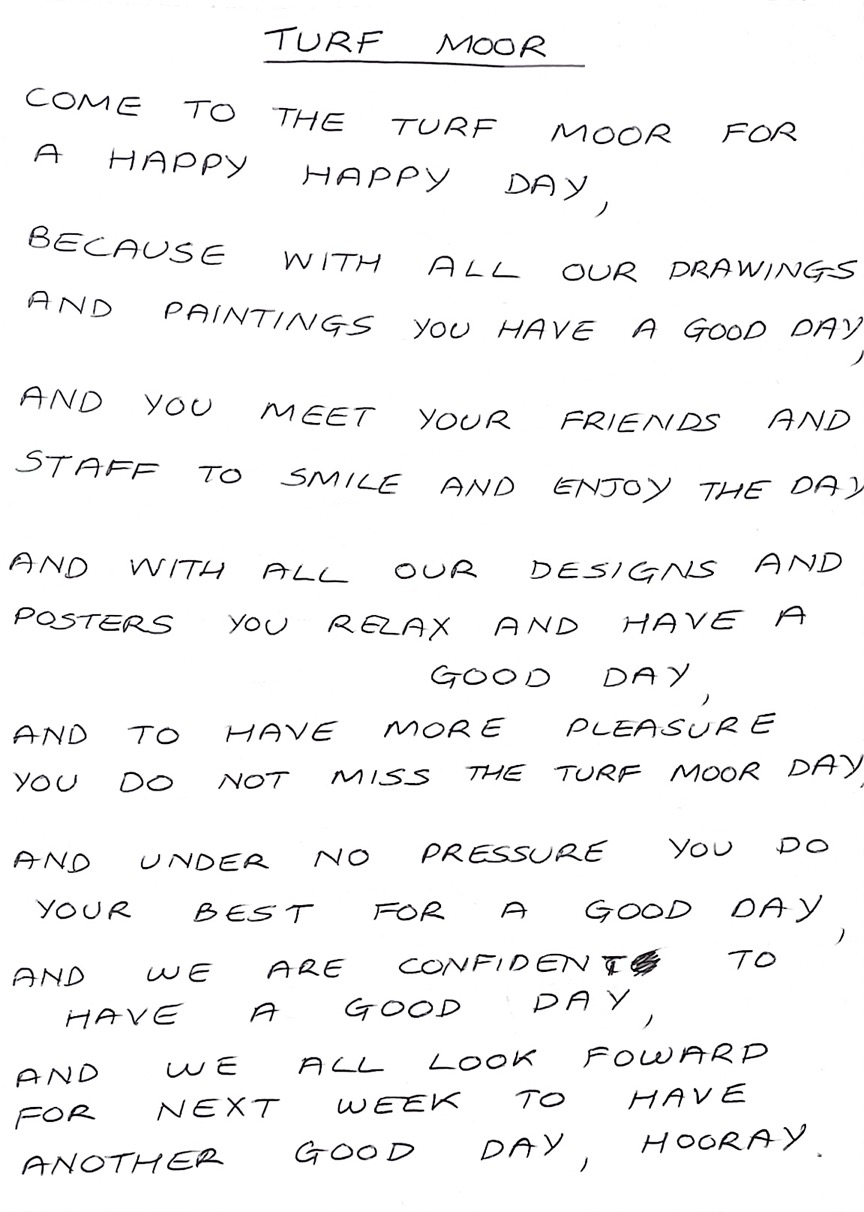 TURF MOOR
COME TO THE TURF MOOR FOR
A HAPPY HAPPY DAY,
BECAUSE WITH ALL OUR DRAWINGS
AND PAINTINGS YOU HAVE A GOOD DAY,
AND YOU MEET YOUR FRIENDS AND
STAFF TO SMILE AND ENJOY THE DAY
AND WITH ALL OUR DESIGNS AND
POSTERS YOU RELAX AND HAVE A
GOOD DAY,
AND TO HAVE MORE PLEASURE
YOU DO NOT MISS THE TURF MOOR DAY,
AND UNDER NO PRESSURE YOU DO
YOUR BEST FOR A GOOD DAY,
AND WE ARE CONFIDENT TO
HAVE A GOOD DAY,
AND WE ALL LOOK FOWARD
FOR NEXT WEEK TO HAVE
ANOTHER GOOD DAY, HOORAY.